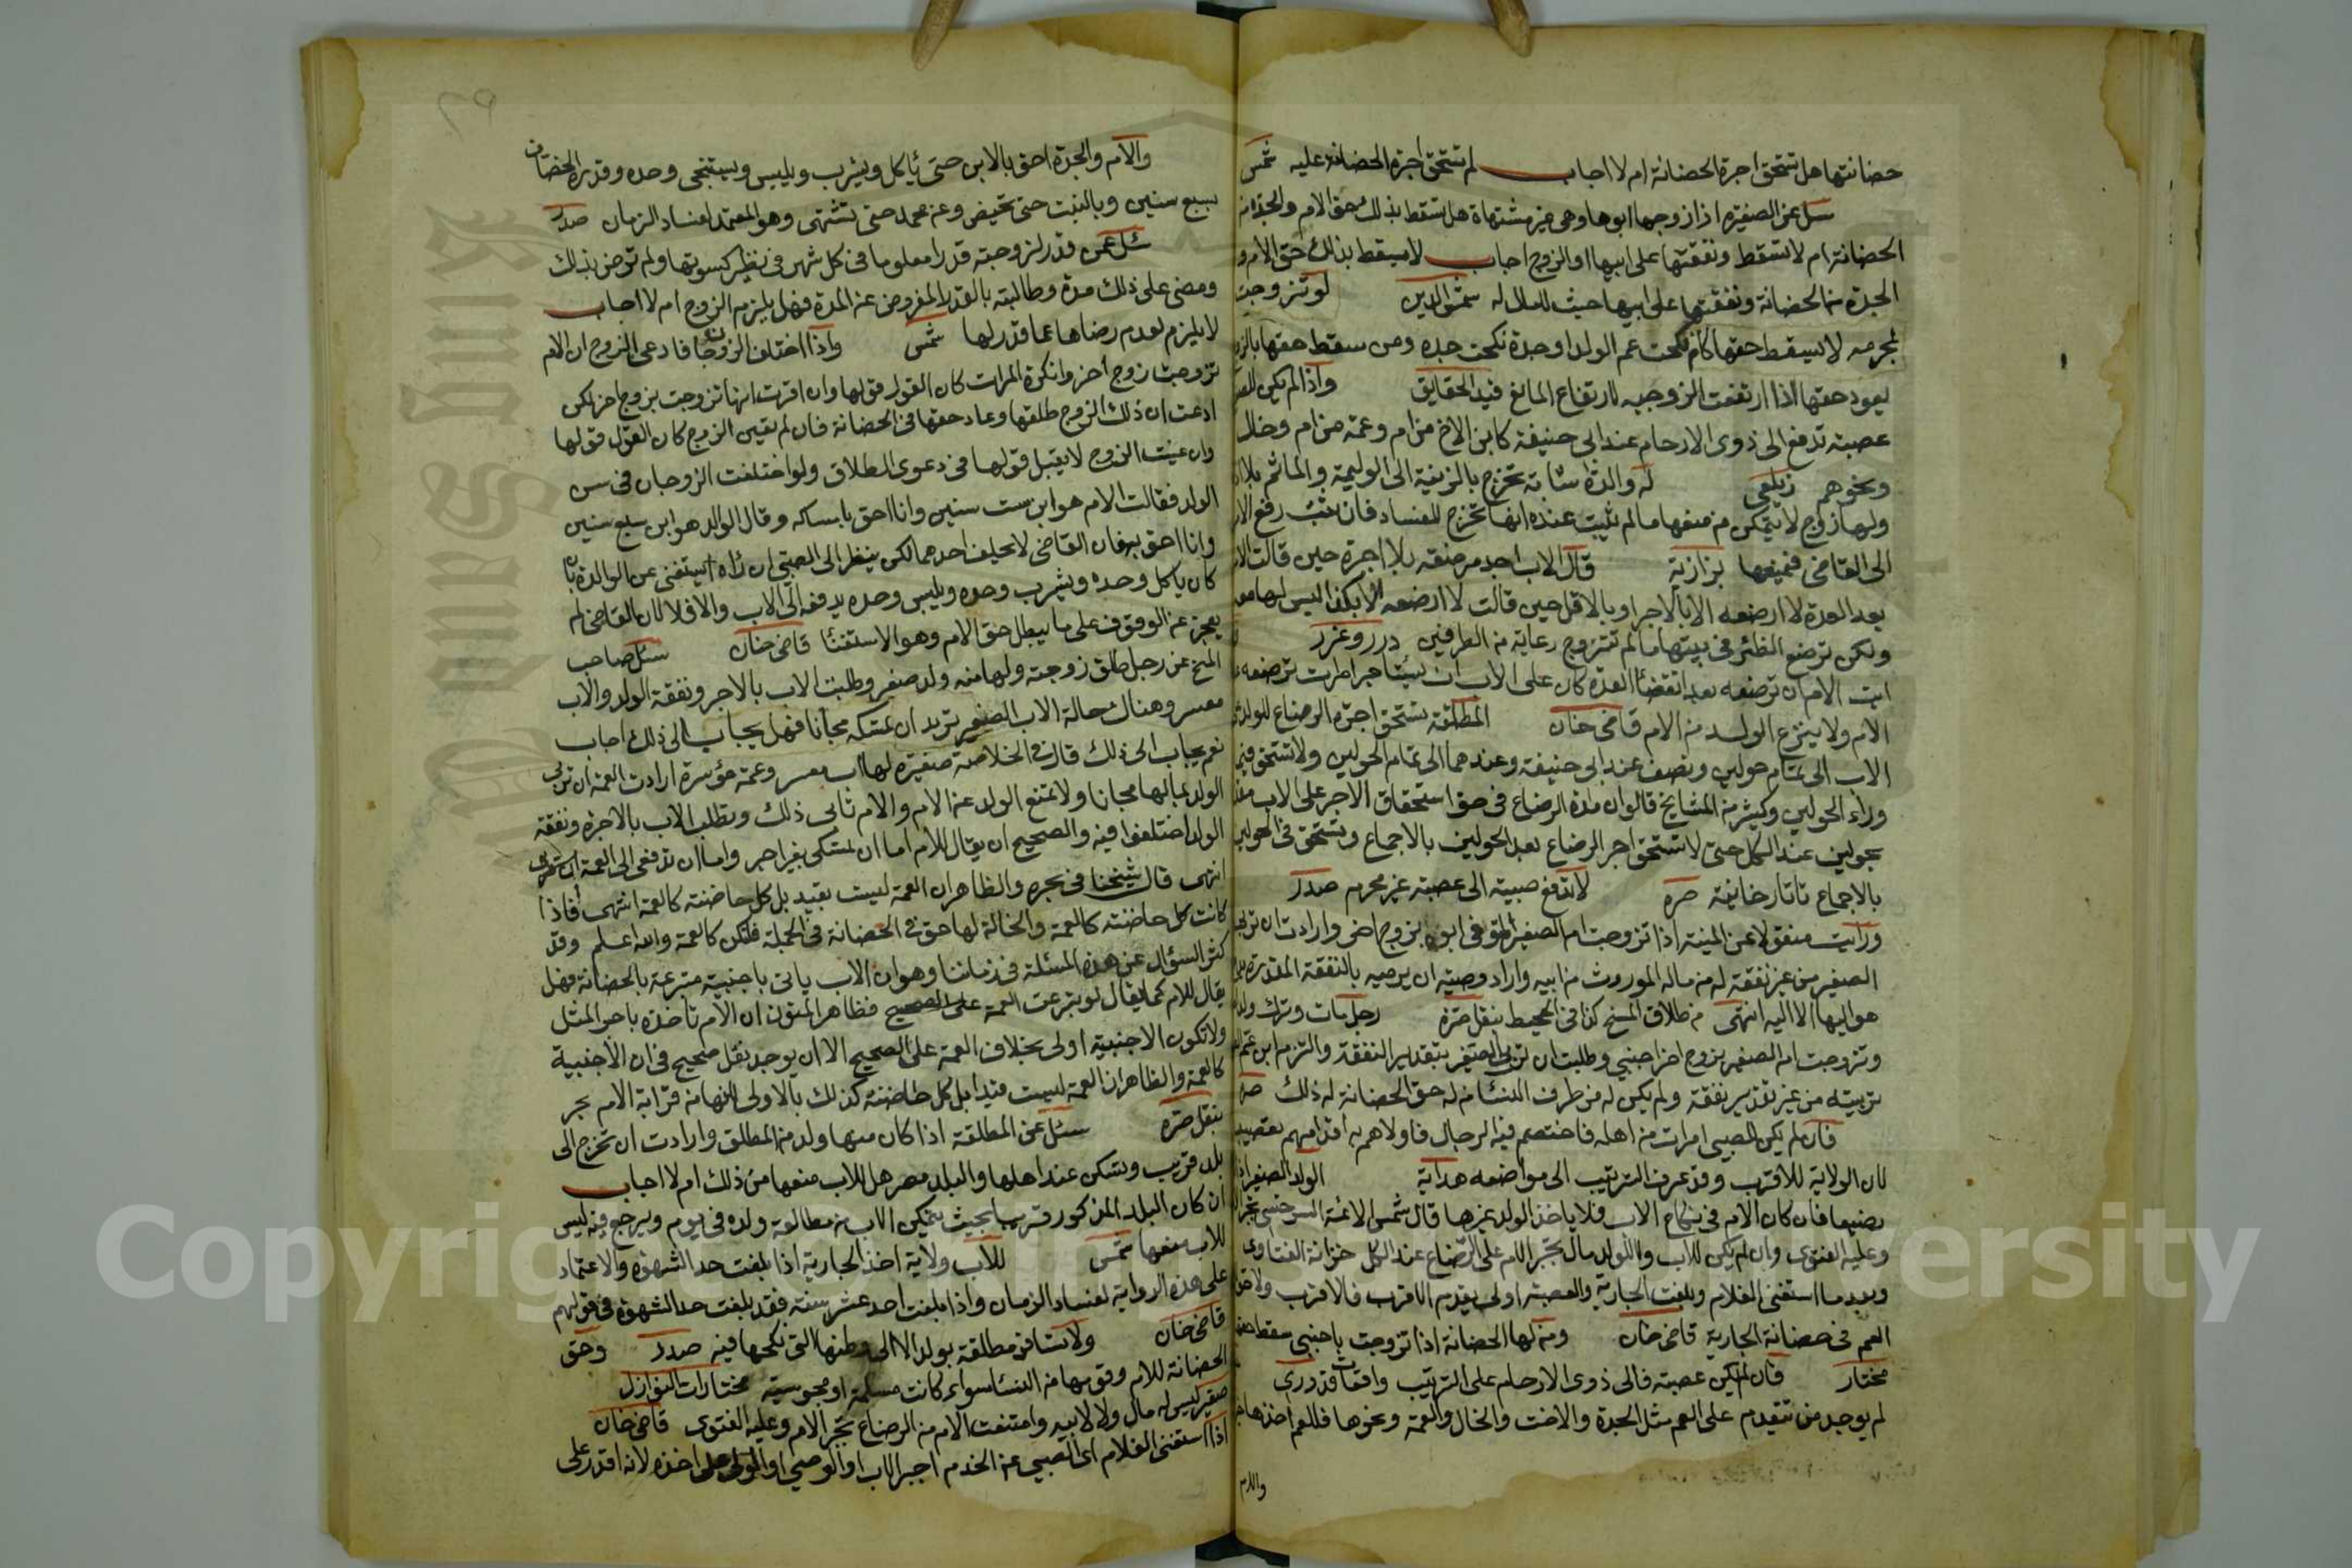 حضانتها هل تستحق اجرة الحضانة ام لا اجاب لم تستحق اجرة الحضانة عليه شمس
سئل عن الصغيرة اذا زوجها ابوها وهي غير مشتهاة هل تسقط بذلك حق الام والجدة من
الحضانة ام لا تسقط ونفقتها على ابيها او الزوج اجاب لا يسقط بذلك حق الام و
الجدة من الحضانة ونفقتها على ابيها حيث لا مال له شمس الدين لو تزوجت
لمحرمه لا يسقط حقها كام نكحت عم الولد او جدة نكحت جده ومن سقط حقها بالزو
يعود حقها اذا ارتفعت الزوجيه لارتفاع المانع فيد الحقايق واذا لم يكن للص
عصبته تدفع الى ذوى الارحام عند ابى حنيفة كابن الاخ من ام وعمه من ام وخال
ونحوهم زيلعى له والدة شابة تخرج بالزينة الى الوليمة والماتم بلا اذ
ولها زوج لا يتمكن من منعها ما لم يثبت عنده انها تخرج للفساد فان ثبت رفع الامر
الى القاضى فيمنعها بزازية قال الاب اجد مرضعه بلا اجرة حين قالت الام
بعد العدة لا ارضعه الا بالاجر او بالاقل حين قالت لا ارضعه الا بكذا ليس لها
ولكن ترضع الظئر فى بيتها ما لم تتزوج رعاية من الطرفين درر وغرر
ابت الام ان ترضعه بعد انقضاء العدة كان على الاب ان يستاجر امراة ترضعه
الام ولا ينزع الولد من الام قاضى خان المطلقة تستحق اجرة الرضاع للولد
الاب الى تمام حولين ونصف عند ابى حنيفة وعندهما الى تمام الحولين ولا تستحق فيما
وراء الحولين وكثير من المشايخ قالوا ان مدة الرضاع فى حق استحقاق الاجر على الاب مقد
بحولين عند الكل حتى لا تستحق اجر الرضاع بعد الحولين بالاجماع وتستحق فى الحولين
بالاجماع تاتارخانية صره لا تدفع صبية الى عصبته غير محرم صدر
ورايت منقولا عن المنية اذا تزوجت ام الصغير المتوفى ابوه بزوج اخر وارادت ان تربى
الصغير من غير نفقة له من ماله الموروث من ابيه واراد وصيته ان يربيه بالنفقة المقدرة
هو اليها لا اليه انتهى من طلاق المنح كذا فى المحيط بنقل صره رجل مات وترك ولدا
وتزوجت امه الصغير بزوج اخر اجنبي وطلبت ان تربى الصغير بتقدير النفقة والتزم ابن عم
تربيته من غير تقدير نفقة ولم يكن له من طرف النساء من له حق الحضانة له ذلك صره
فان لم يكن للصبي امرات من اهله فاختصم فيه الرجال فاولاهم به اقدامهم تعصيبا
لان الولاية للاقرب وقد عرف الترتيب الى مواضعه هداية الولد الصغير اذا
فان كان الام فى نكاح الاب فلا ياخذ الولد غيرها قال شمس الائمة السرخسى تجبر
وعليه الفتوى وان لم يكن للاب ولا للولد مال تجبر الام على الرضاع عند الكل خزانة الفتاوى
وبعد ما استغنى الغلام وبلغت الجارية والعصبة اولى يقدم الاقرب فالاقرب ولا حق
العم فى حضانة الجارية قاضى خان ومن لها الحضانة اذا تزوجت باجنبى سقط حقها
مختار فان لم يكن عصبته فالى ذوى الارحام على الترتيب واقعات قدورى
لم يوجد من تتقدم على العم مثل الجدة والاخت والخال والعمة ونحوها فللعم اخذها
والام
٢٩
والام والجدة احق بالابن حتى ياكل ويشرب ويلبس ويستنجى وحده وقدره الخصاف
بسبع سنين وبالبنت حتى تحيض وعن محمد حتى تشتهى وهو المعتمد لفساد الزمان صدر
سئل عمن قدر لزوجته قدرا معلوما فى كل شهر فى نظير كسوتها ولم ترض بذلك
ومضى على ذلك مدة وطالبته بالقدر المفروض عن المدة فهل يلزم الزوج ام لا اجاب
لا يلزم لعدم رضاها عما قدر لها شمس واذا اختلف الزوجان فادعى الزوج ان الام
تزوجت زوج اخر وانكرة المرات كان القول قولها وان اقرت انها تزوجت بزوج اخر لكن
ادعت ان ذلك الزوج طلقها وعاد حقها فى الحضانة فان لم تعين الزوج كان القول قولها
وان عينت الزوج لا يقبل قولها فى دعوى الطلاق ولو اختلفت الزوجان فى سن
الولد فقالت الام هو ابن ست سنين وانا احق بامساكه وقال الوالد هو ابن سبع سنين
وانا احق به فان القاضى لا يحلف احدهما لكن ينظر الى الصبي ان راه استغنى عن الوالدة بان
كان ياكل وحده ويشرب وحده ويلبس وحده يدفعه الى الاب والا فلا لان القاضى لم
يعجز عن الوقوف على ما يبطل حق الام وهو الاستغناء قاضى خان سئل صاحب
المنح عن رجل طلق زوجته ولها منه ولد صغير وطلبت الاب بالاجر ونفقة الولد والاب
معسر وهناك خالة الاب الصغير تريد ان تمسكه مجانا فهل يجاب الى ذلك اجاب
نعم يجاب الى ذلك قال فى الخلاصة صغيرة لها اب معسر وعمة موسرة ارادت العمة ان تربى
الولد بمالها مجانا ولا تمنع الولد عن الام والام تابى ذلك وتطلب الاب بالاجرة ونفقة
الولد اختلفوا فيه والصحيح ان يقال للام اما ان تمسكى بغير اجر واما ان تدفعى الى العمة
انتهى قال شيخنا فى بحره والظاهر ان العمة ليست بقيد بل كل حاضنته كالعمة انتهى فاذا
كانت كل حاضنته كالعمة والخالة لها حق فى الحضانة فى الجملة فلتكن كالعمة والله اعلم وقد
كثر السؤال عن هذه المسئلة فى زماننا وهو ان الاب ياتى باجنبية متبرعة بالحضانة فهل
يقال للام كما يقال لو تبرعت العمة على الصحيح فظاهر المتون ان الام تاخذه باجر المثل
ولا تكون الاجنبية اولى بخلاف العمة على الصحيح الا ان يوجد نقل صحيح فى ان الاجنبية
كالعمة والظاهر ان العمة ليست قيدا بل كل حاضنته كذلك بالاولى لانها من قرابة الام بحر
بنقل صره سئل عن المطلقة اذا كان معها ولد من المطلق وارادت ان تخرج الى
بلد قريب وتسكن عند اهلها والبلد مصر هل للاب منعها من ذلك ام لا اجاب
ان كان البلد المذكور قريبا بحيث يتمكن الاب من مطالعة ولده فى يوم ويرجع فيه ليس
للاب منعها شمس للاب ولاية اخذ الجارية اذا بلغت حد الشهوة والاعتماد
على هذه الرواية لفساد الزمان واذا بلغت احد عشر سنة فقد بلغت حد الشهوة فى قولهم
قاضى خان ولا تسافر مطلقة بولد الا الى وطنها التى نكحها فيه صدر وحق
الحضانة للام وفوقها من النساء سواء كانت مسلمة او مجوسية مختارات النوازل
صغير ليس له مال ولا لابيه وامتنعت الام من الرضاع تجبر الام وعليه الفتوى قاضى خان
اذا استغنى الغلام اى الصبي عن الخدم اجبر الاب او الوصى او الولى على اخذه لانه اقدر على